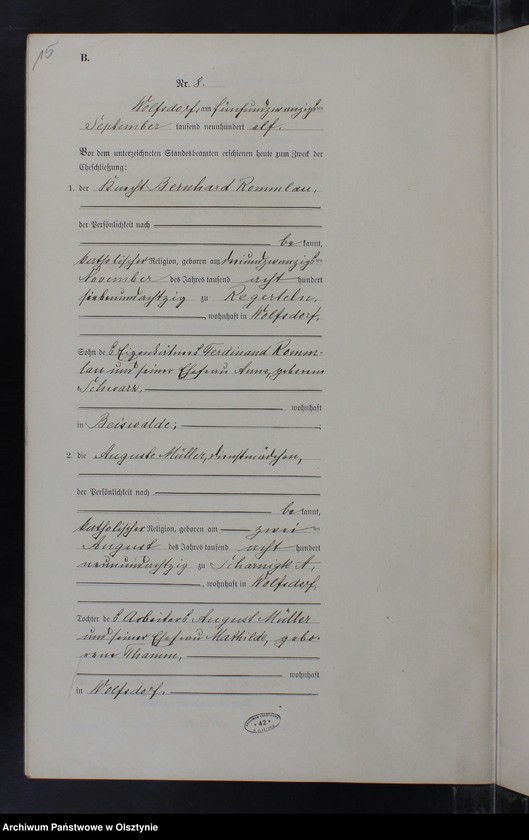 15
B.
Nr. 8.
Wolfsdorf, am fünfundzwanzigsten
September tausend neunhundert elf.
Vor dem unterzeichneten Standesbeamten erschienen heute zum Zweck der
Eheschließung:
1. der Knecht Bernhard Rommlau,
der Persönlichkeit nach
be kannt,
katholischer Religion, geboren am dreiundzwanzigsten
November des Jahres tausend acht hundert
siebenundachtzig zu Regerteln,
, wohnhaft in Wolfsdorf,
Sohn des Eigenkätners Ferdinand Romm-
lau und seiner Ehefrau Anna, geborenen
Schwarz,
wohnhaft
in Beiswalde;
2. die Auguste Müller, Dienstmädchen,
der Persönlichkeit nach
be kannt,
katholischer Religion, geboren am zweiten
August des Jahres tausend acht hundert
neunundachtzig zu Scharnigk A,
, wohnhaft in Wolfsdorf,
Tochter des Arbeiters August Müller
und seiner Ehefrau Mathilde, gebo-
rene Thamm,
wohnhaft
in Wolfsdorf.
42
Archiwum Państwowe w Olsztynie